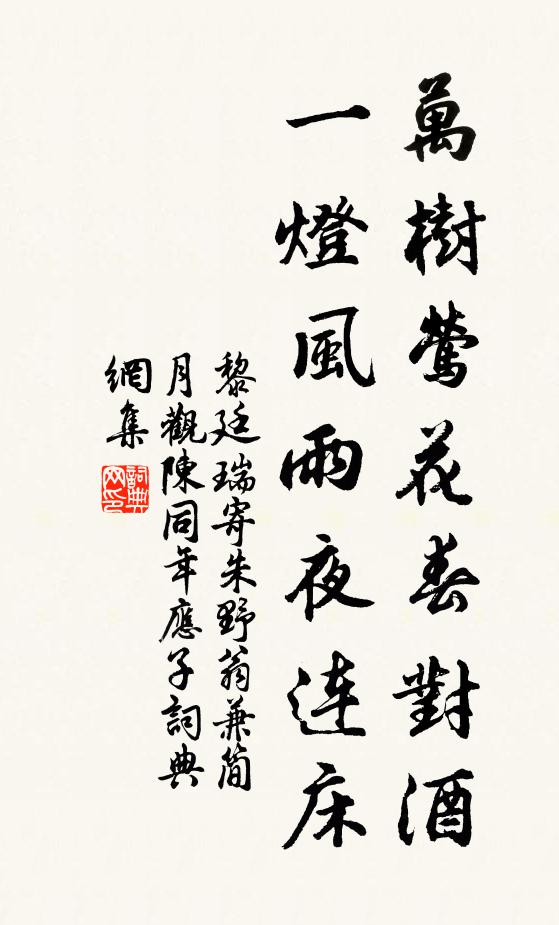 萬樹鶯花春對酒
一燈風雨夜连床
黎廷瑞寄朱野翁兼简
月觀陳同年應子詞典
網集
詞典
网印